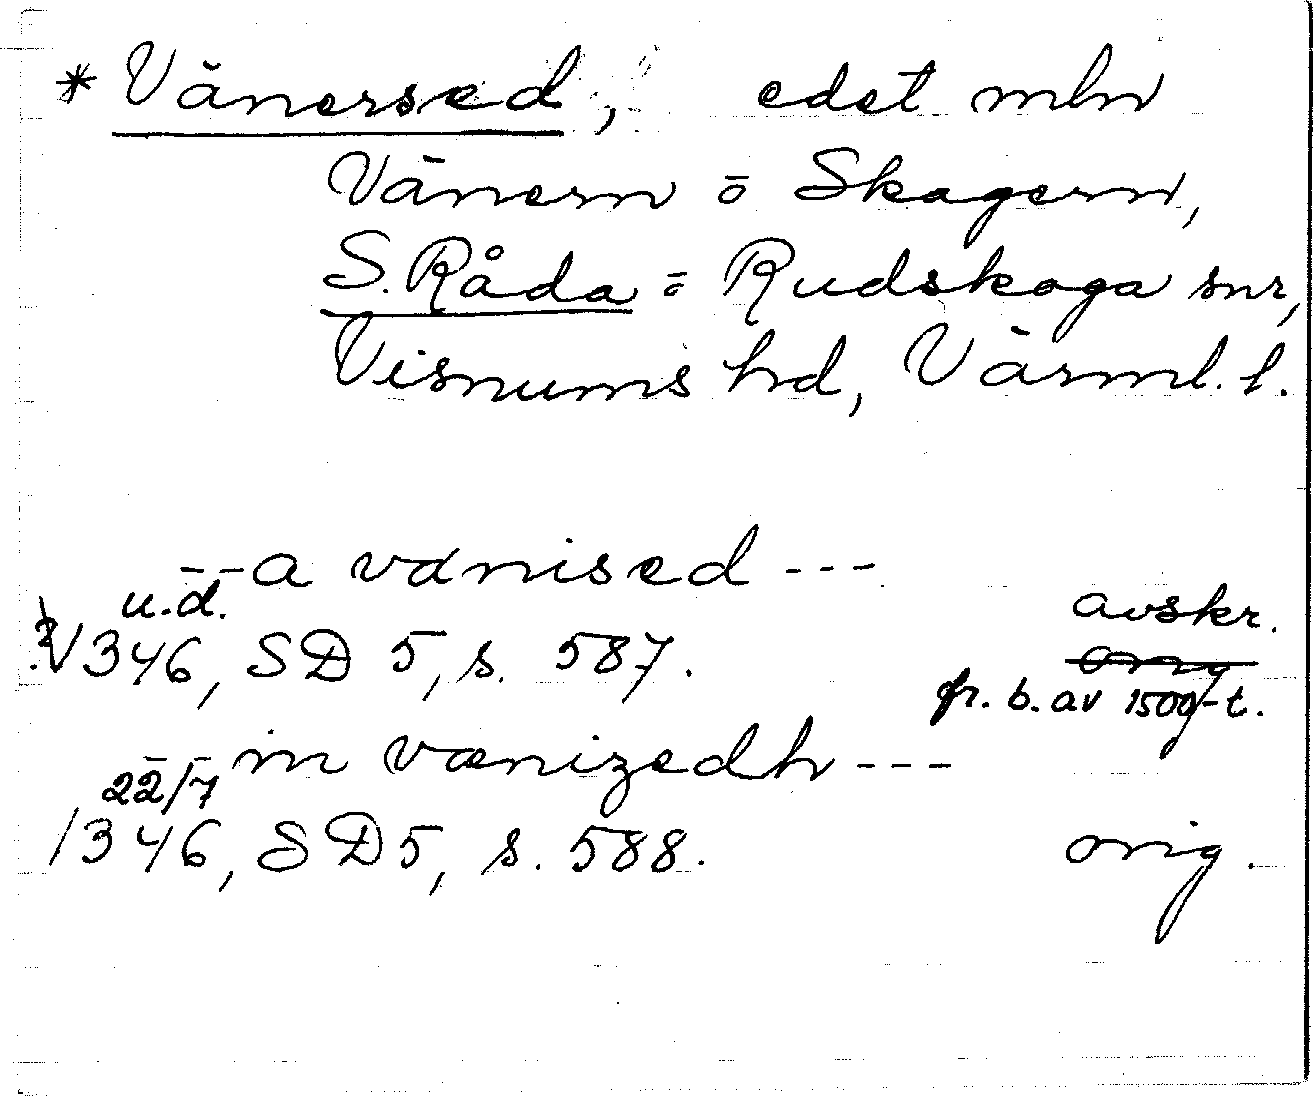 * Vänersed, edet mln
Vänern o Skagern,
S. Råda o Rudskoga snr,
Visnums hd, Värml. l.
--a vanised ---
u.d.
1346, SD 5, s. 587.
avskr.
orig
fr. b. av 1500-t.
-- in vænizedh ---
22/7
1346, SD 5, s. 588.
orig.